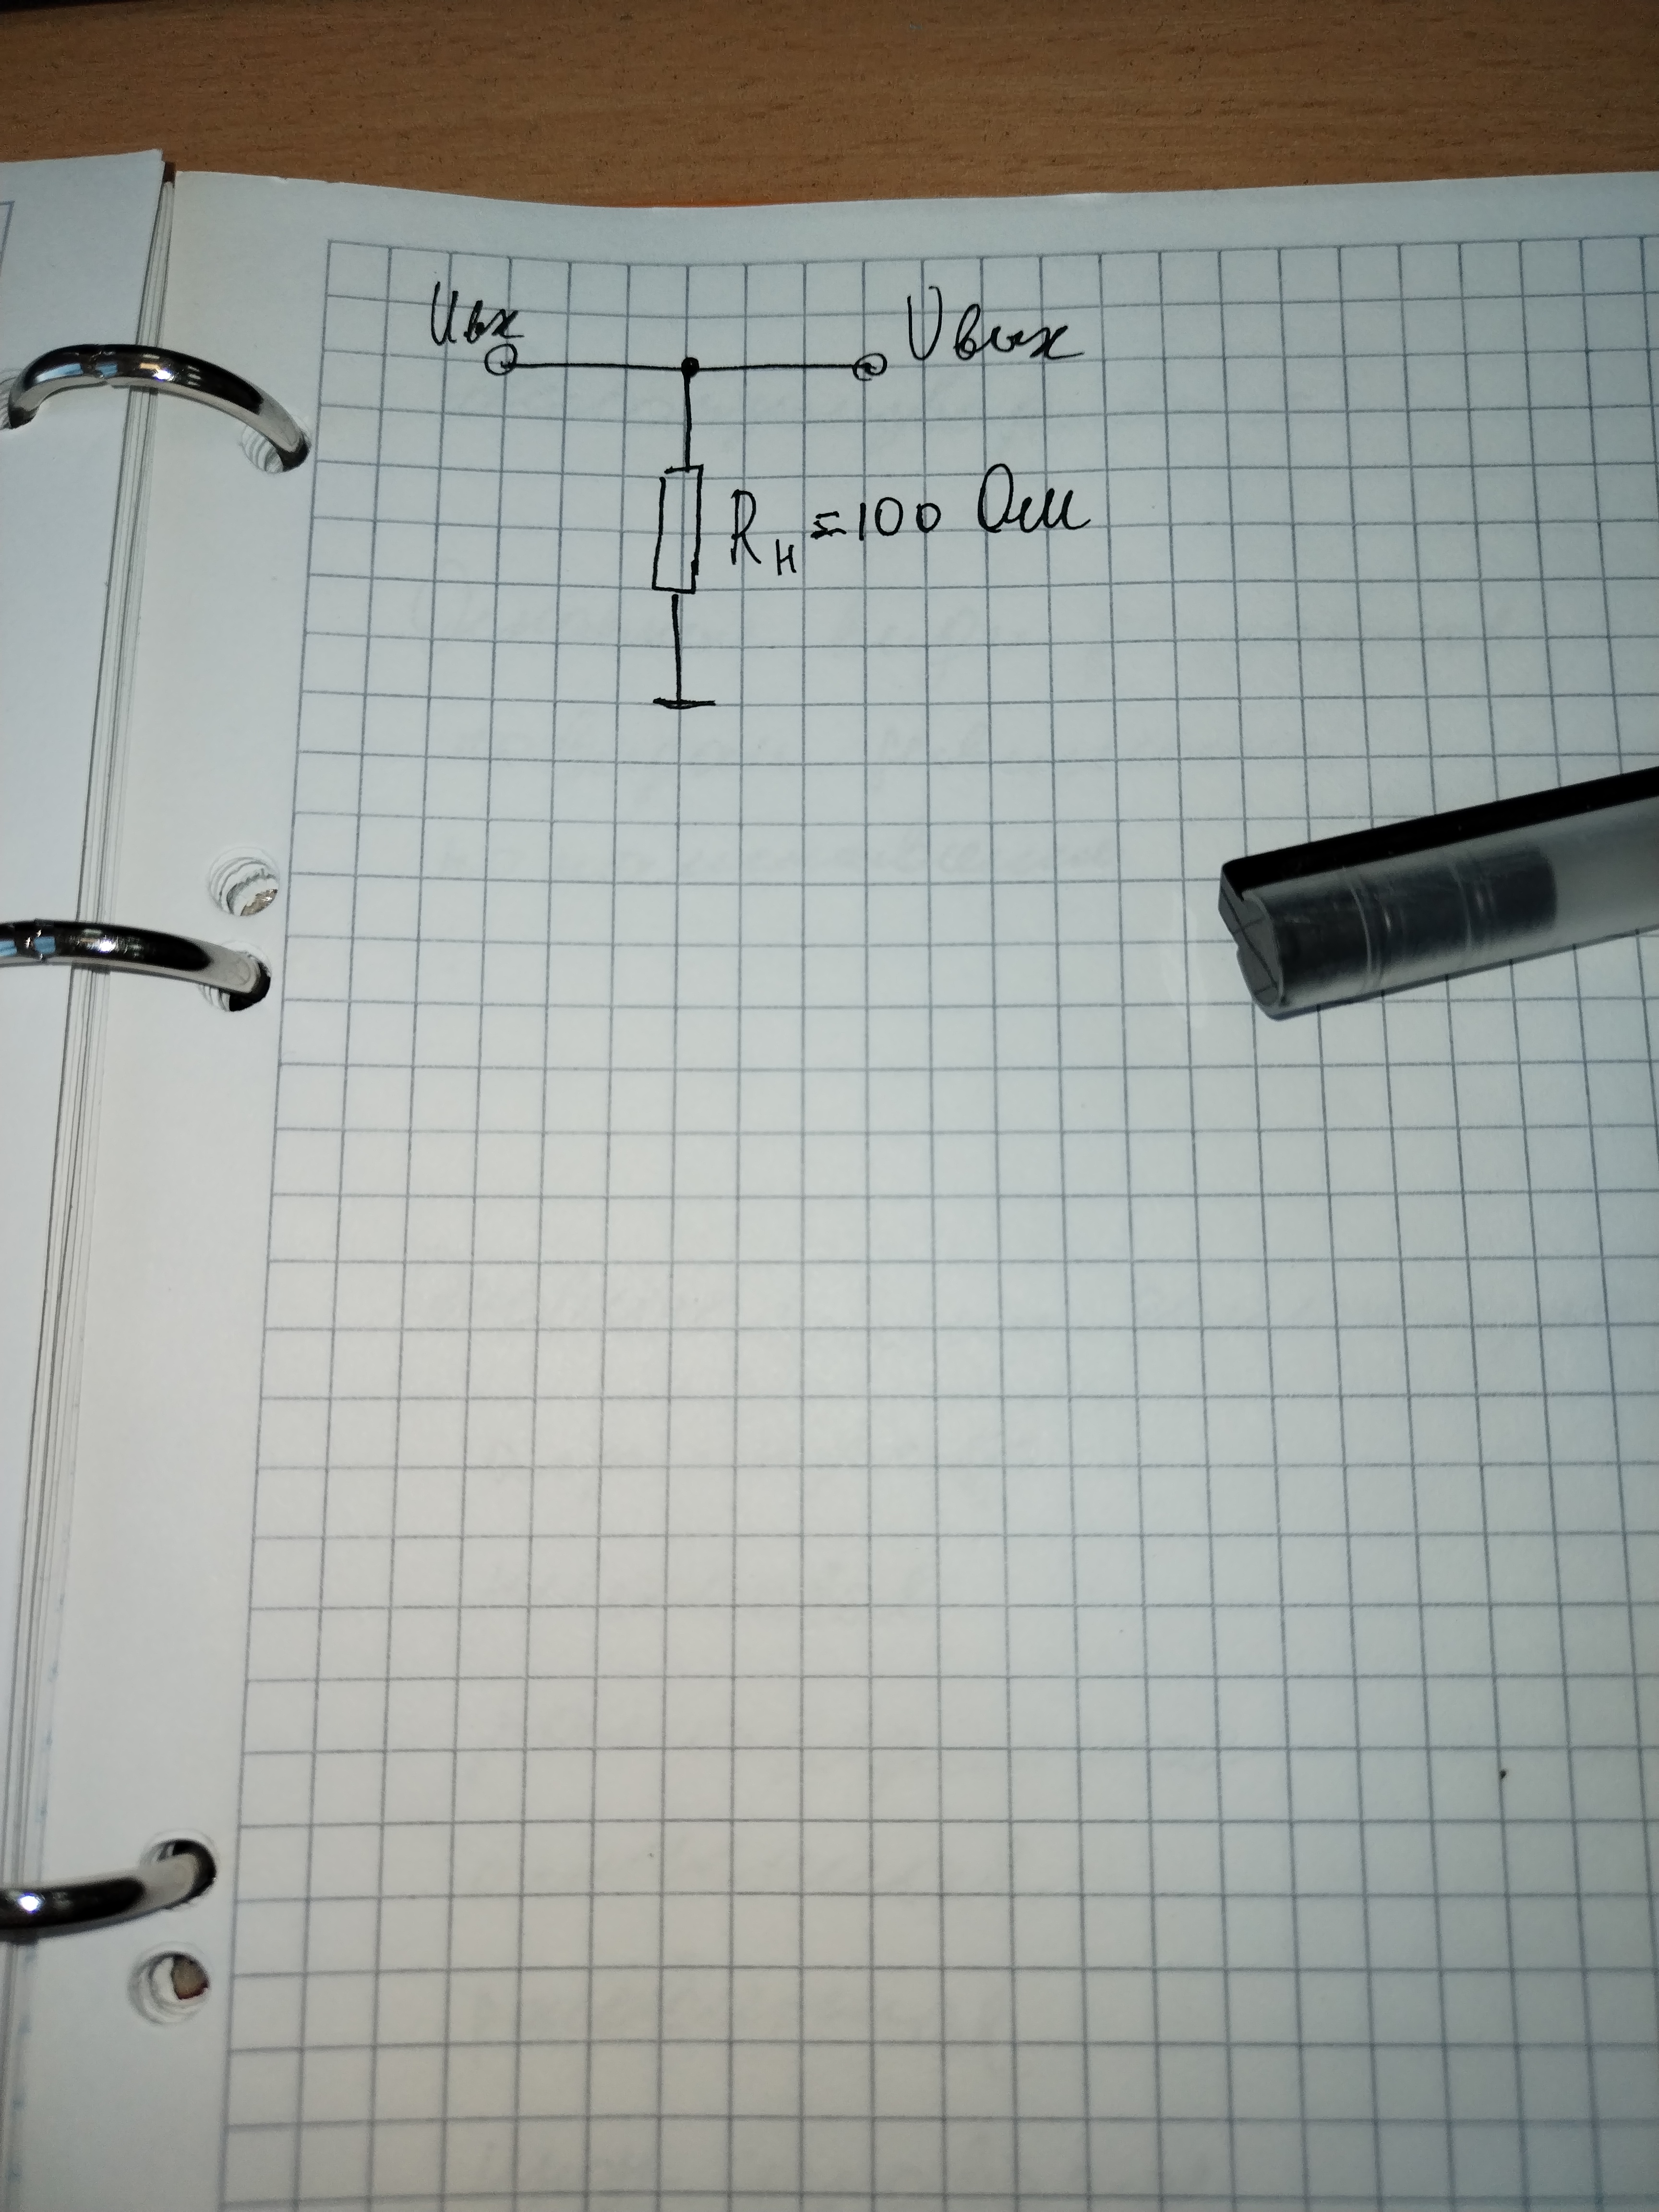 Uвх
Uвых
Rн = 100 Ом